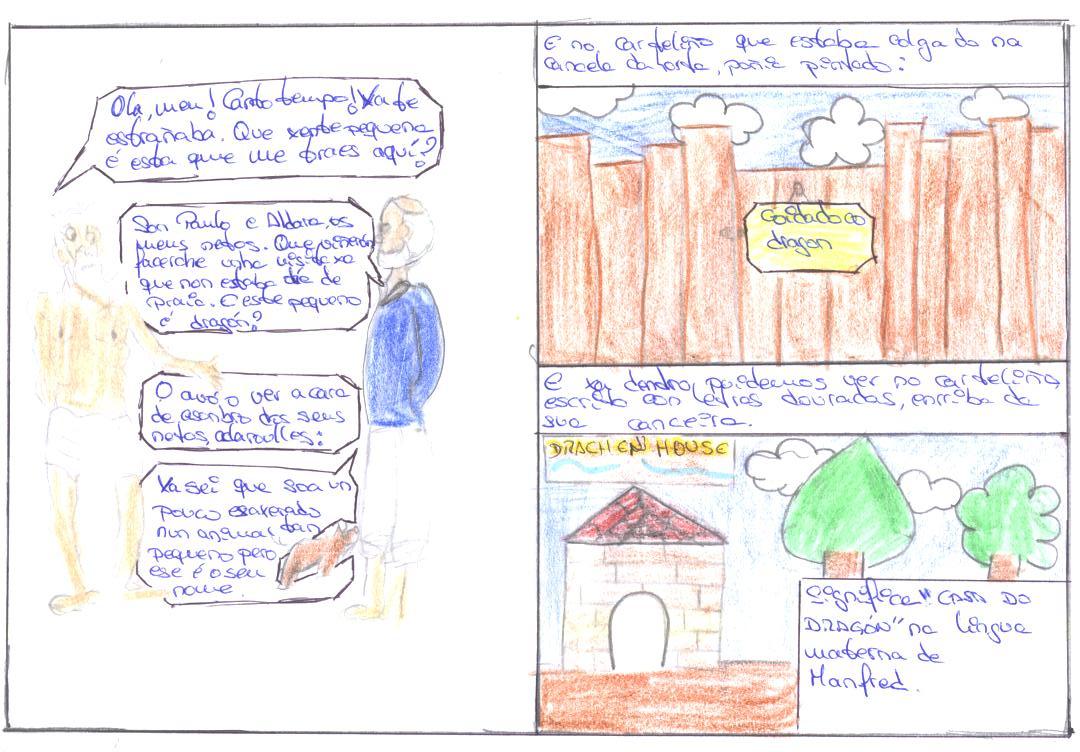 Olá, meu! Canto tempo! Xa te
estrañaba. Que xente pequena
é esta que me traes aquí?
Son Paulo e Aldara, os
meus netos. Que viñeron
facerche unha visita xa
que non estaba día de
praia. E este pequeno
é dragón?
O avó, o ver a cara
de asombro dos seus
netos, aclaroulles:
Xa sei que soa un
pouco esaxerado
nun animal tan
pequeno pero
ese é o seu
nome.
E no carteliño que estaba colgado na
cancela da horta, poñía pintado:
Coidado co
dragon
E xa dentro, puidemos ver no carteliño,
escrito con letras douradas, enriba da
súa canceira.
DRACHEN HOUSE
Significa "CASA DO
DRAGÓN" na lingua
materna de
Manfred.